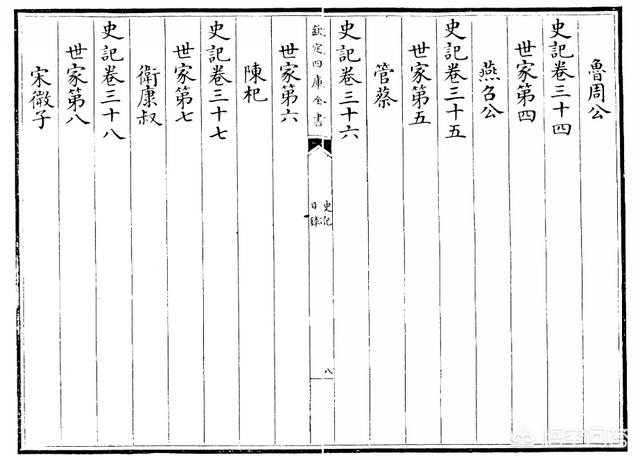 魯周公
史記卷三十四
世家第四
燕召公
史記卷三十五
世家第五
管蔡
史記卷三十六
欽定四庫全書
史記
目錄
八
世家第六
陳杞
史記卷三十七
世家第七
衛康叔
史記卷三十八
世家第八
宋微子
悟空问答